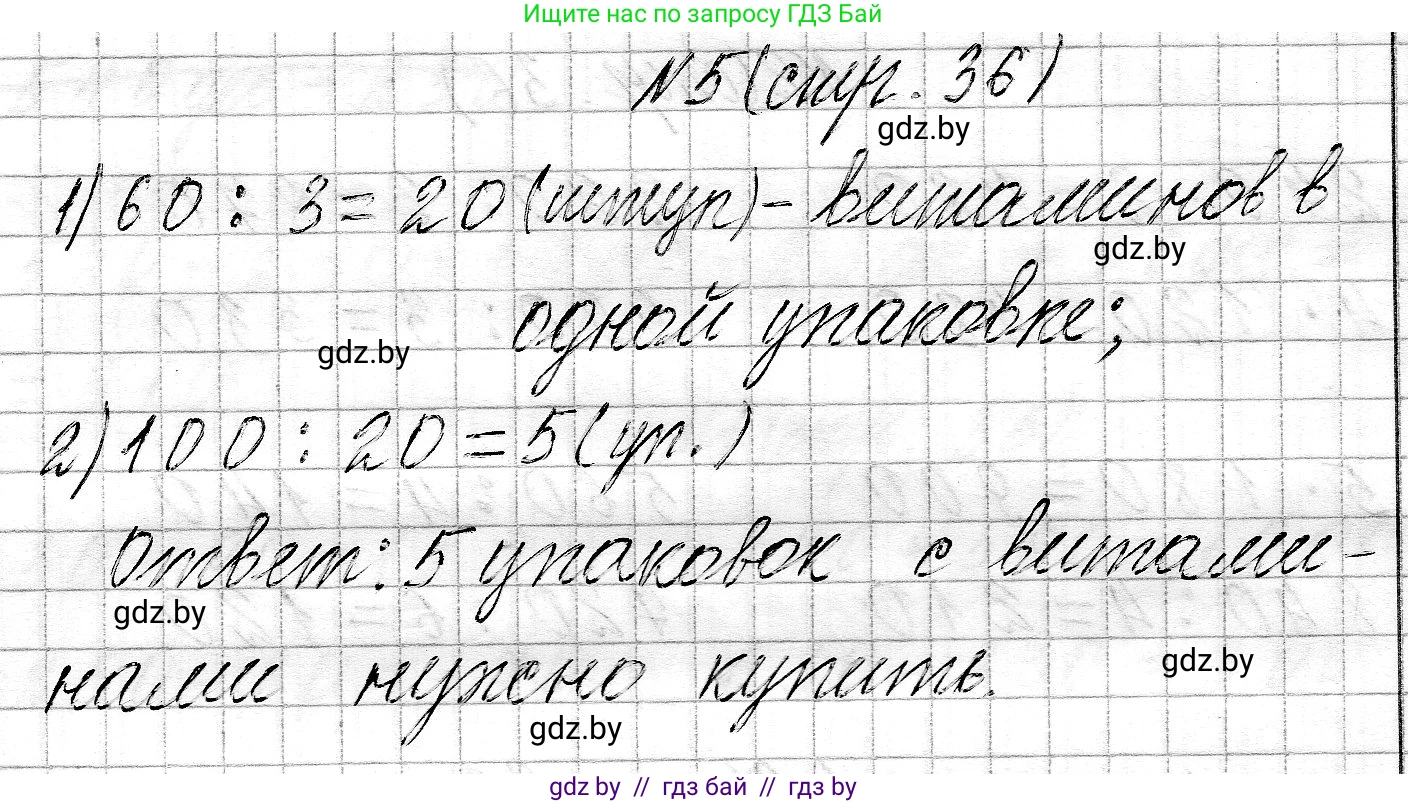 Ищите нас по запросу ГДЗ Бай
№5 (стр. 36)
gdz.by
1) 60 : 3 = 20 (штук) - витаминов в
gdz.by
одной упаковке;
gdz.by
2) 100 : 20 = 5 (уп.)
Ответ: 5 упаковок с витами-
gdz.by
нами нужно купить.
gdz.by
gdz.by
gdz.by // гдз бай // гдз by